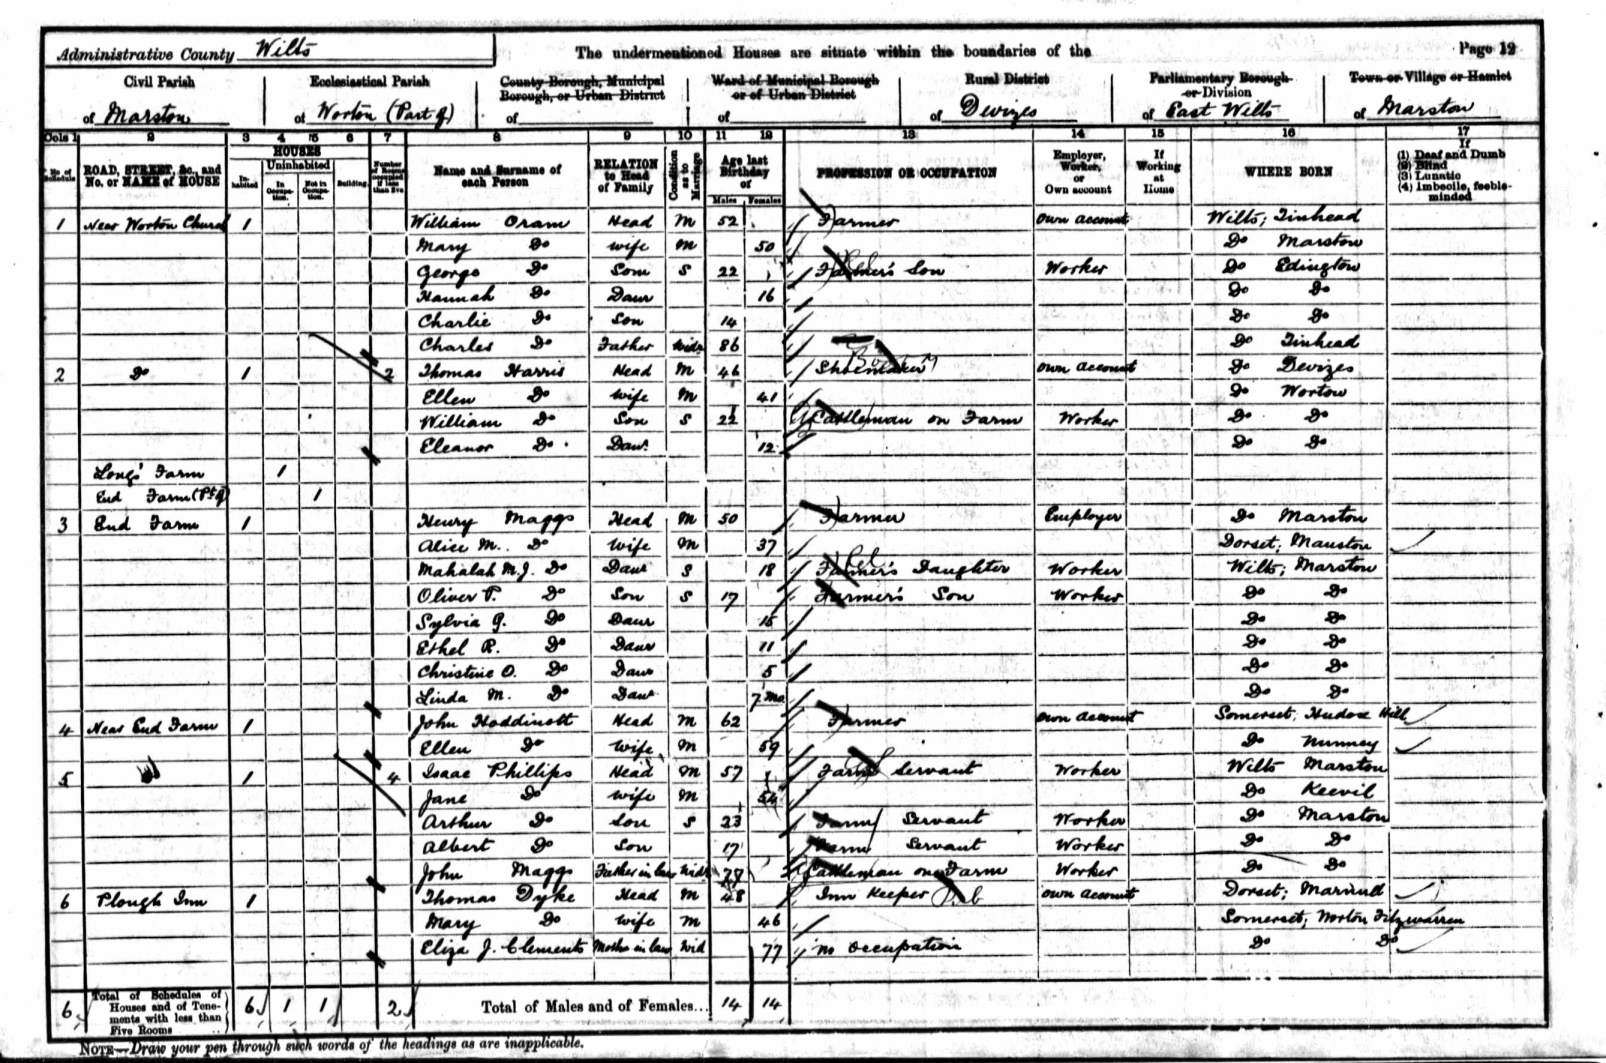 Administrative County Wilts
The undermentioned Houses are situate within the boundaries of the
Page 12
Civil Parish of Marston
Ecclesiastical Parish of Worton (Part of)
County Borough, Municipal Borough, or Urban District of
Ward of Municipal Borough or of Urban District of
Rural District of Devizes
Parliamentary Borough or Division of East Wilts
Town or Village or Hamlet of Marston
Cols 1 2 3 4 5 6 7 8 9 10 11 12 13 14 15 16 17
No. of Schedule
ROAD, STREET, &c., and No. or NAME of HOUSE
HOUSES
Inhabited
Uninhabited
In Occupation.
Not in Occupation.
Building.
Number of Rooms occupied if less than five
Name and Surname of each Person
RELATION to Head of Family
Condition as to Marriage
Age last Birthday of
Males Females
PROFESSION OR OCCUPATION
Employer, Worker, or Own account
If Working at Home
WHERE BORN
If
(1) Deaf and Dumb
(2) Blind
(3) Lunatic
(4) Imbecile, feeble-minded
1 Near Worton Church 1 William Oram Head M 52 Farmer Own account Wilts; Tinhead
Mary Do Wife M 50 Do Marston
George Do Son S 22 Farmer's Son Worker Do Edington
Hannah Do Daur 16 Do Do
Charlie Do Son 14 Do Do
Charles Do Father Widr 86 Do Tinhead
2 Do 1 2 Thomas Harris Head M 46 Shoemaker Own account Do Devizes
Ellen Do Wife M 41 Do Worton
William Do Son S 22 Cattleman on Farm Worker Do Do
Eleanor Do Daur 12 Do Do
Long's Farm 1
End Farm (Pt of) 1
3 End Farm 1 Henry Maggs Head M 50 Farmer Employer Do Marston
Alice M. Do Wife M 37 Dorset; Manston
Mahalah M.J. Do Daur S 18 Farmer's Daughter Worker Wilts; Marston
Oliver P. Do Son S 17 Farmer's Son Worker Do Do
Sylvia G. Do Daur 15 Do Do
Ethel R. Do Daur 11 Do Do
Christine O. Do Daur 5 Do Do
Linda M. Do Daur 7 mo Do Do
4 Near End Farm 1 John Hoddinott Head M 62 Farmer Own account Somerset; Hill
Ellen Do Wife M 59 Do Nunney
5 1 4 Isaac Phillips Head M 57 Farm Servant Worker Wilts Marston
Jane Do Wife M 54 Do Keevil
Arthur Do Son S 23 Farm Servant Worker Do Marston
Albert Do Son 17 Farm Servant Worker Do Do
John Maggs Father in law Widr 78 Cattleman on Farm Worker Do Do
6 Plough Inn 1 Thomas Dyke Head M 48 Inn Keeper Pub Own account Dorset;
Mary Do Wife M 46 Somerset; Norton Fitzwarren
Eliza J. Clements Mother in law Wid 77 No occupation Do Do
6 Total of Schedules of Houses and of Tenements with less than Five Rooms 6 1 1 2 Total of Males and of Females... 14 14
NOTE—Draw your pen through such words of the headings as are inapplicable.